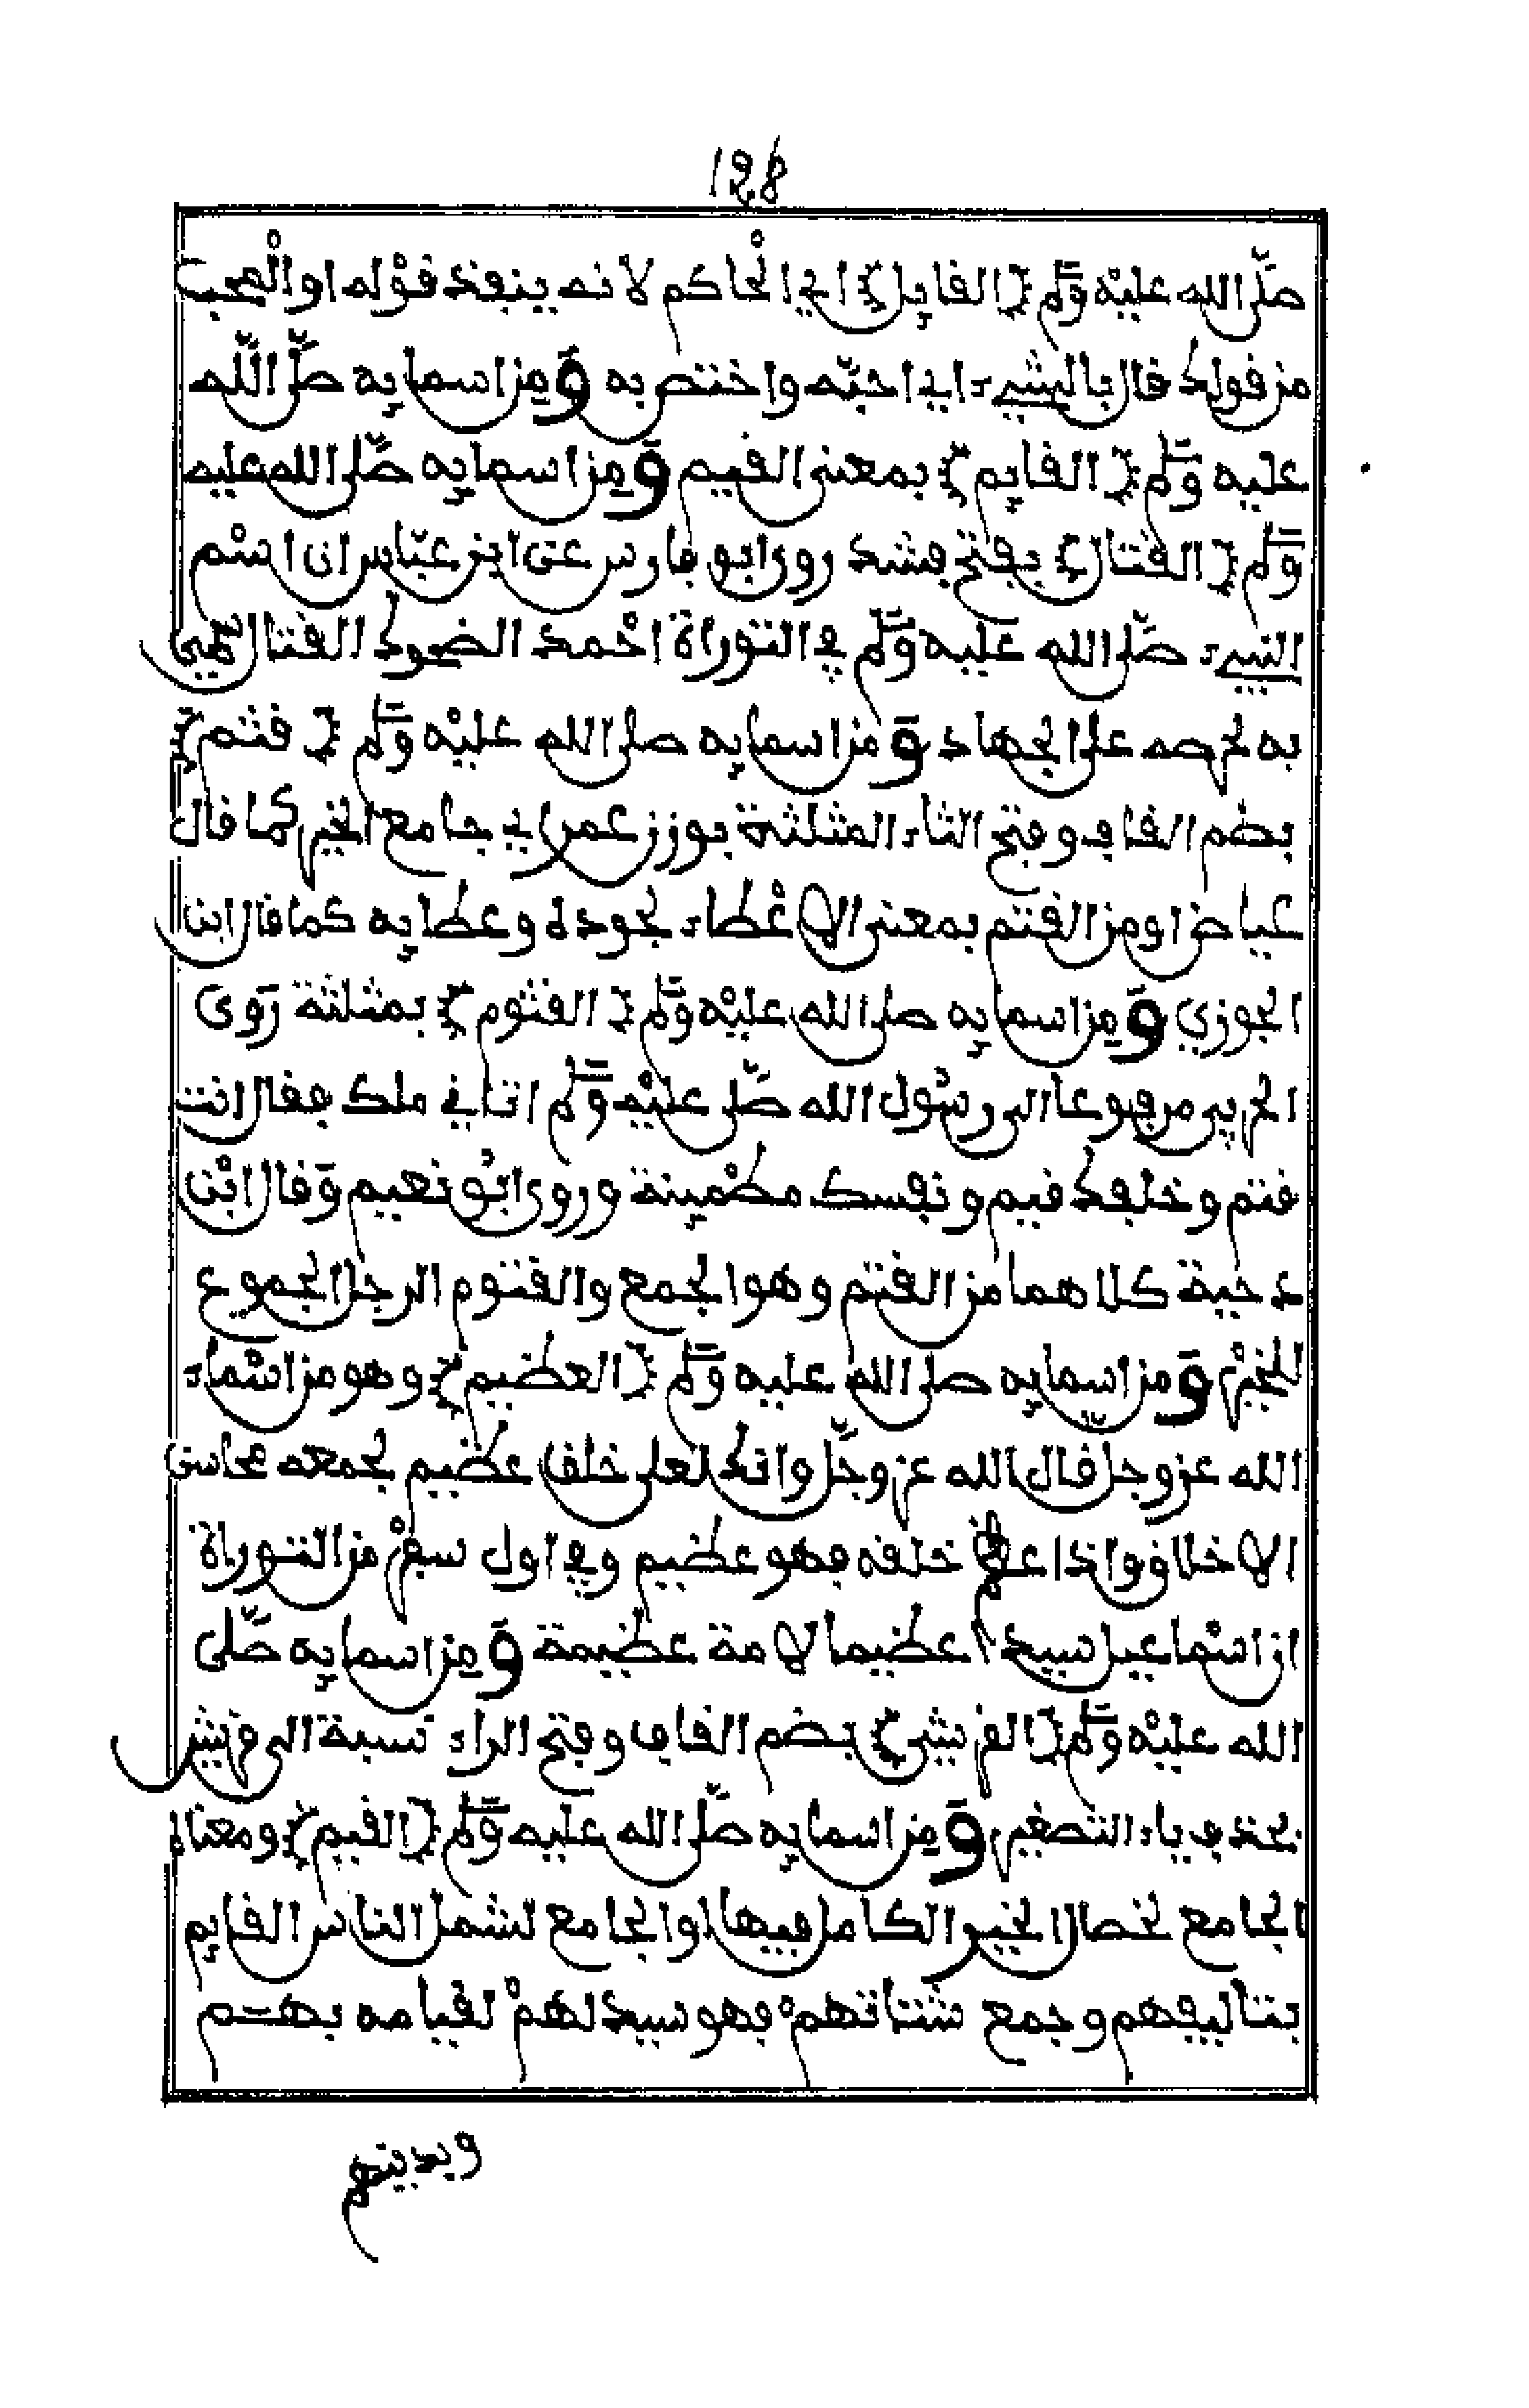 128
صلى الله عليه وسلم {القايل} اي الحاكم لانه ينفذ قوله او المحب
من قولك قال بالشيء اي احبه واختص به ومن اسمايه صلى الله
عليه وسلم {القايم} بمعنى القيم ومن اسمايه صلى الله عليه
وسلم {القتال} بفتح فشد روى ابو فارس عن ابن عباس ان اسم
النبيء صلى الله عليه وسلم في التوراة احمد الضحوك القتال سمي
به لحرصه على الجهاد ومن اسمايه صلى الله عليه وسلم {قثم}
بضم القاف وفتح الثاء المثلثة بوزن عمر اي جامع الخير كما قال
عياض او من القثم بمعنى الاعطاء لجوده وعطايه كما قال ابن
الجوزي ومن اسمايه صلى الله عليه وسلم {القثوم} بمثلثة روى
الحربي مرفوعا الى رسول الله صلى عليه وسلم اتاني ملك فقال انت
قثم وخلقك قيم ونفسك مطمينة وروى ابو نعيم وقال ابن
دحية كلاهما من القثم وهو الجمع والقثوم الرجل الجموع
للخير ومن اسمايه صلى الله عليه وسلم {العظيم} وهو من اسماء
الله عز وجل قال الله عز وجل وانك لعلى خلق عظيم لجمعه محاسن
الاخلاق واذا عظم خلقه فهو عظيم وفي اول سفر من التوراة
ان اسماعيل سيلد عظيما لامة عظيمة ومن اسمايه صلى
الله عليه وسلم {القرشي} بضم القاف وفتح الراء نسبة الى قريش
بحذف ياء التصغير ومن اسمايه صلى الله عليه وسلم {القيم} ومعناه
الجامع لخصال الخير الكامل فيها او الجامع لشمل الناس القايم
بتاليفهم وجمع شتاتهم فهو سيد لهم لقيامه بهم
وبدينهم